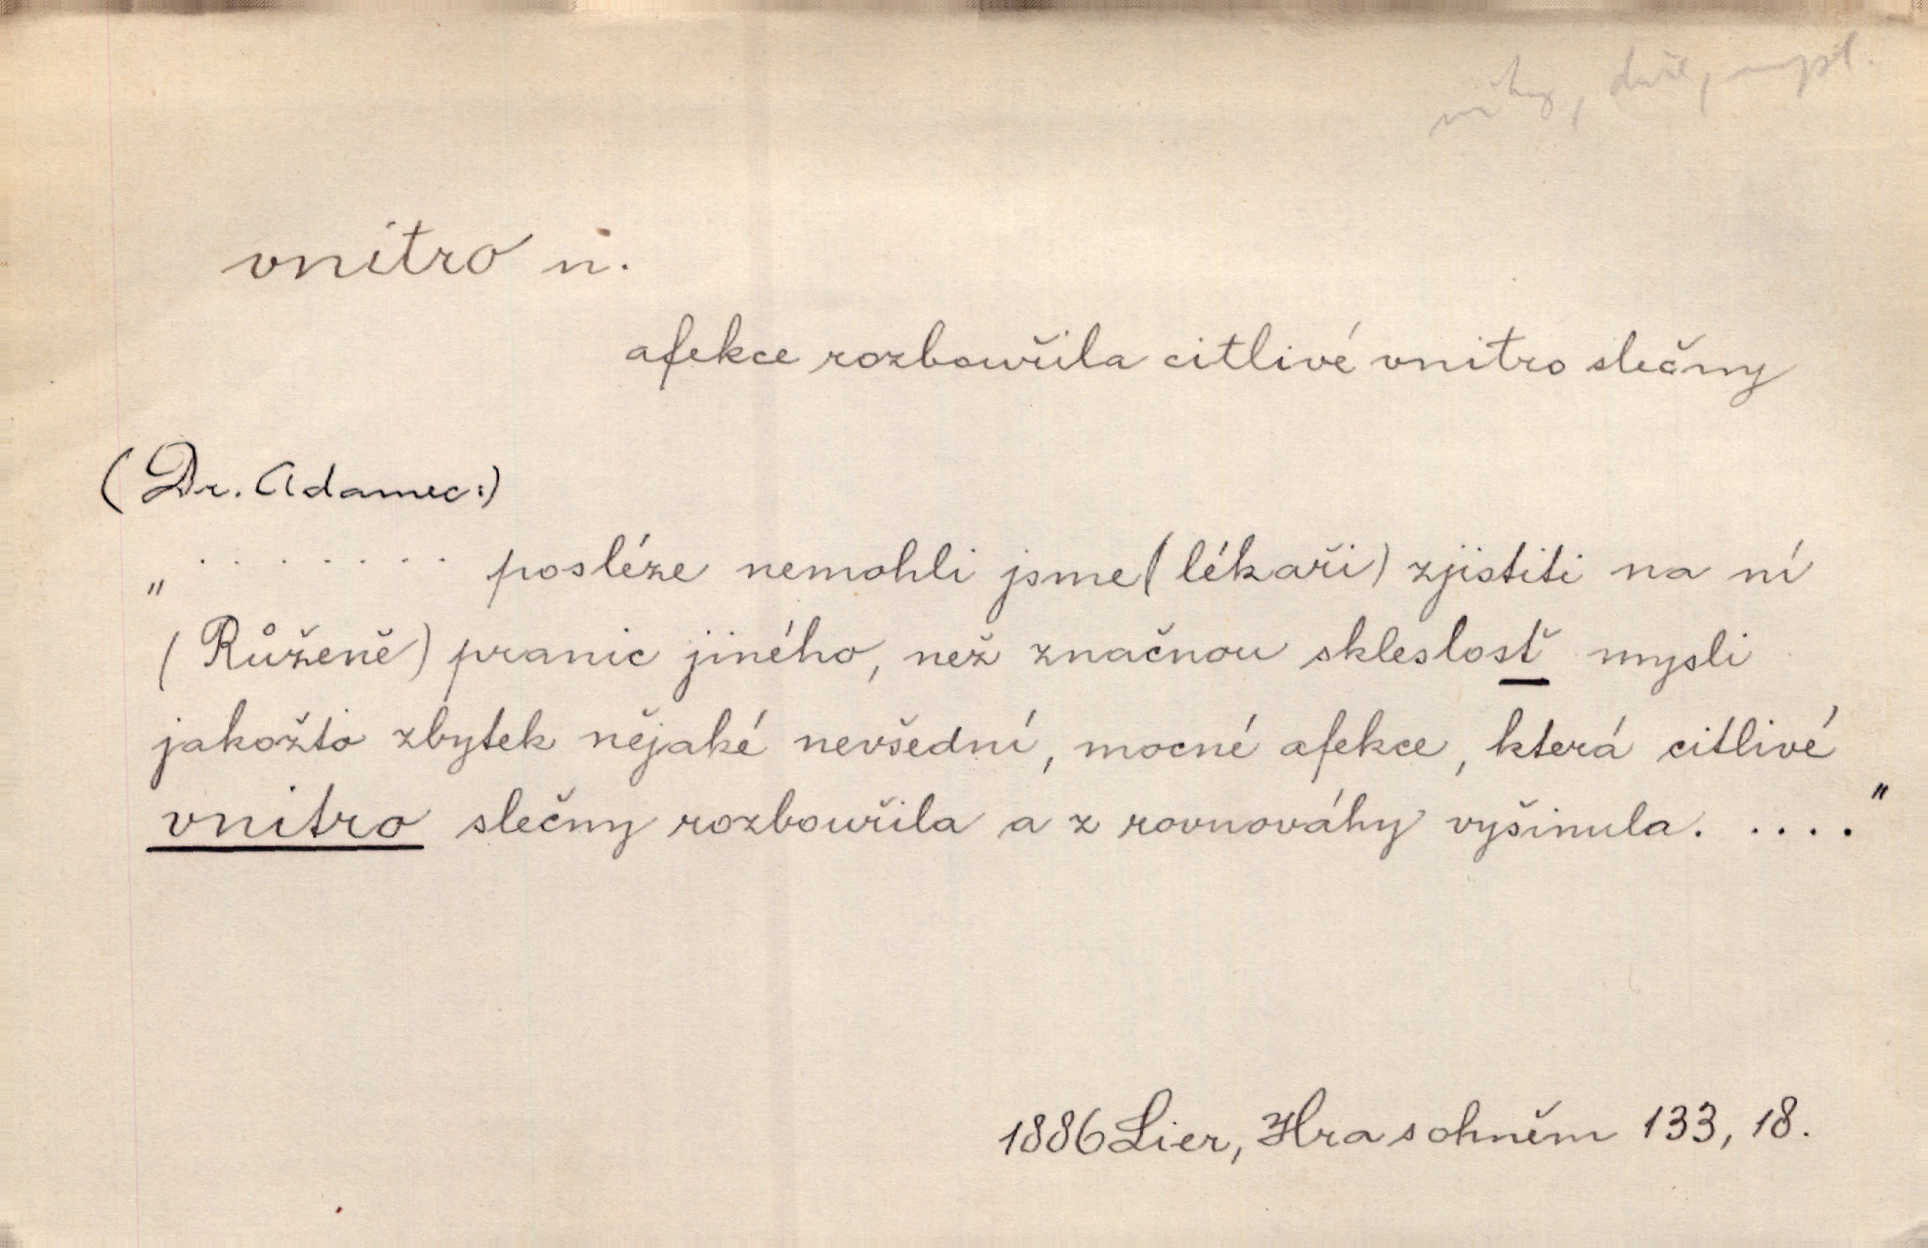 vnitro n.
afekce rozbouřila citlivé vnitro slečny
(Dr. Adamec:)
„ . . . . . . . . posléze nemohli jsme (lékaři) zjistiti na ní
(Růženě) pranic jiného, než značnou skleslosť mysli
jakožto zbytek nějaké nevšední, mocné afekce, která citlivé
vnitro slečny rozbouřila a z rovnováhy vyšinula. . . . . "
1886 Lier, Hra s ohněm 133, 18.